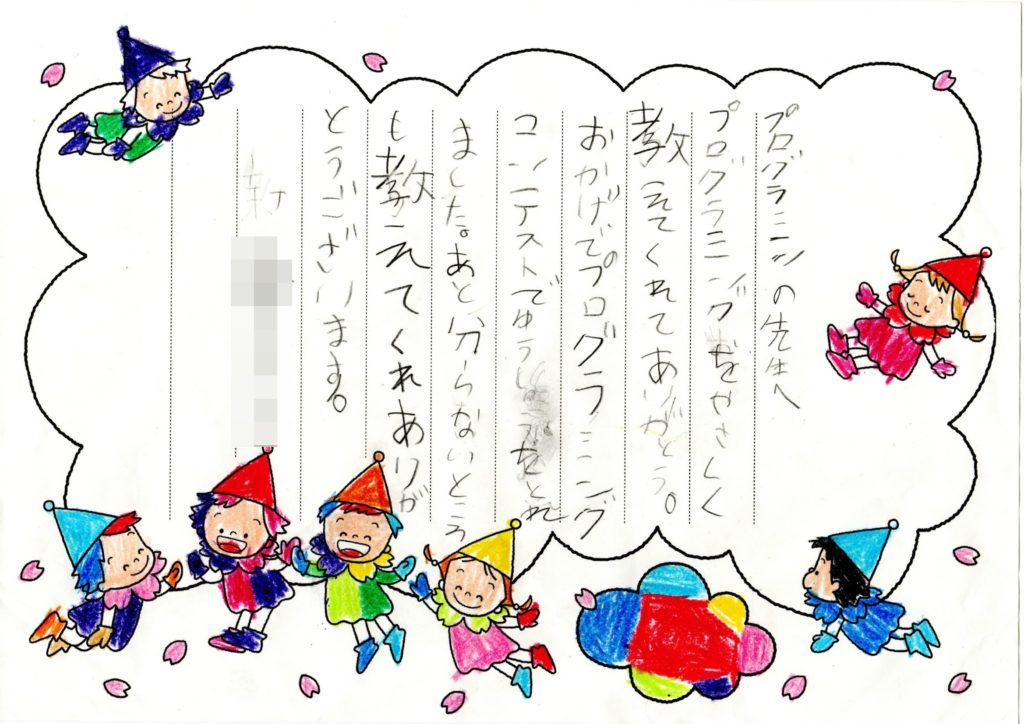 プログラミンの先生へ
プログラミングをやさしく
教えてくれてありがとう。
おかげでプログラミング
コンテストでゆうしょうをとれ
ました。あと分らないところ
も教えてくれありが
とうござります。
新